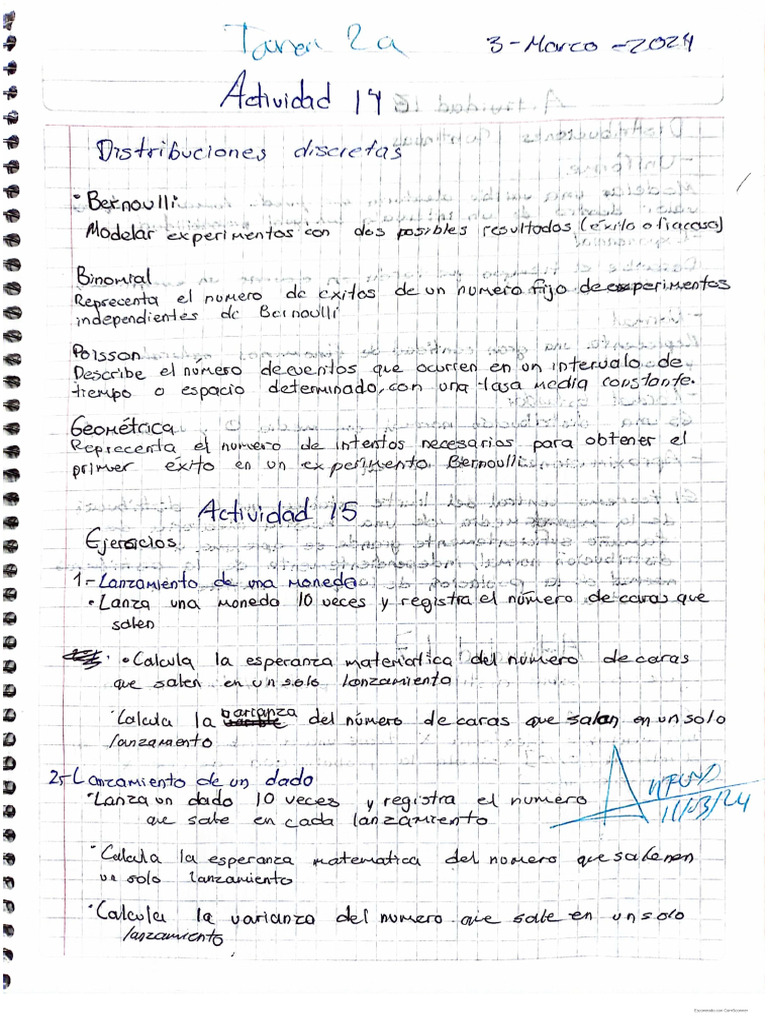 Tarea 2a
3-Marzo-2024
Actividad 14
Distribuciones discretas
•Bernoulli
Modelar experimentos con dos posibles resultados (éxito o fracaso)
Binomial
Reprecenta el numero de exitos de un numero fijo de experimentos
independientes de Bernoulli
Poisson
Describe el número de eventos que ocurren en un intervalo de
tiempo o espacio determinado, con una tasa media constante.
Geométrica
Reprecenta el numero de intentos necesarios para obtener el
primer éxito en un experimento Bernoulli
Actividad 15
Ejercicios
1-Lanzamiento de una moneda
•Lanza una moneda 10 veces y registra el número de caras que
salen
•Calcula la esperanza matematica del número de caras
que salen en un solo lanzamiento
•Calcula la varianza del número de caras que salen en un solo
lanzamiento
2-Lanzamiento de un dado
•Lanza un dado 10 veces y registra el numero
que sale en cada lanzamiento
11/03/24
•Calcula la esperanza matematica del numero que sale en en
un solo lanzamiento
•Calcula la varianza del numero que sale en un solo
lanzamiento
Escaneado con CamScanner